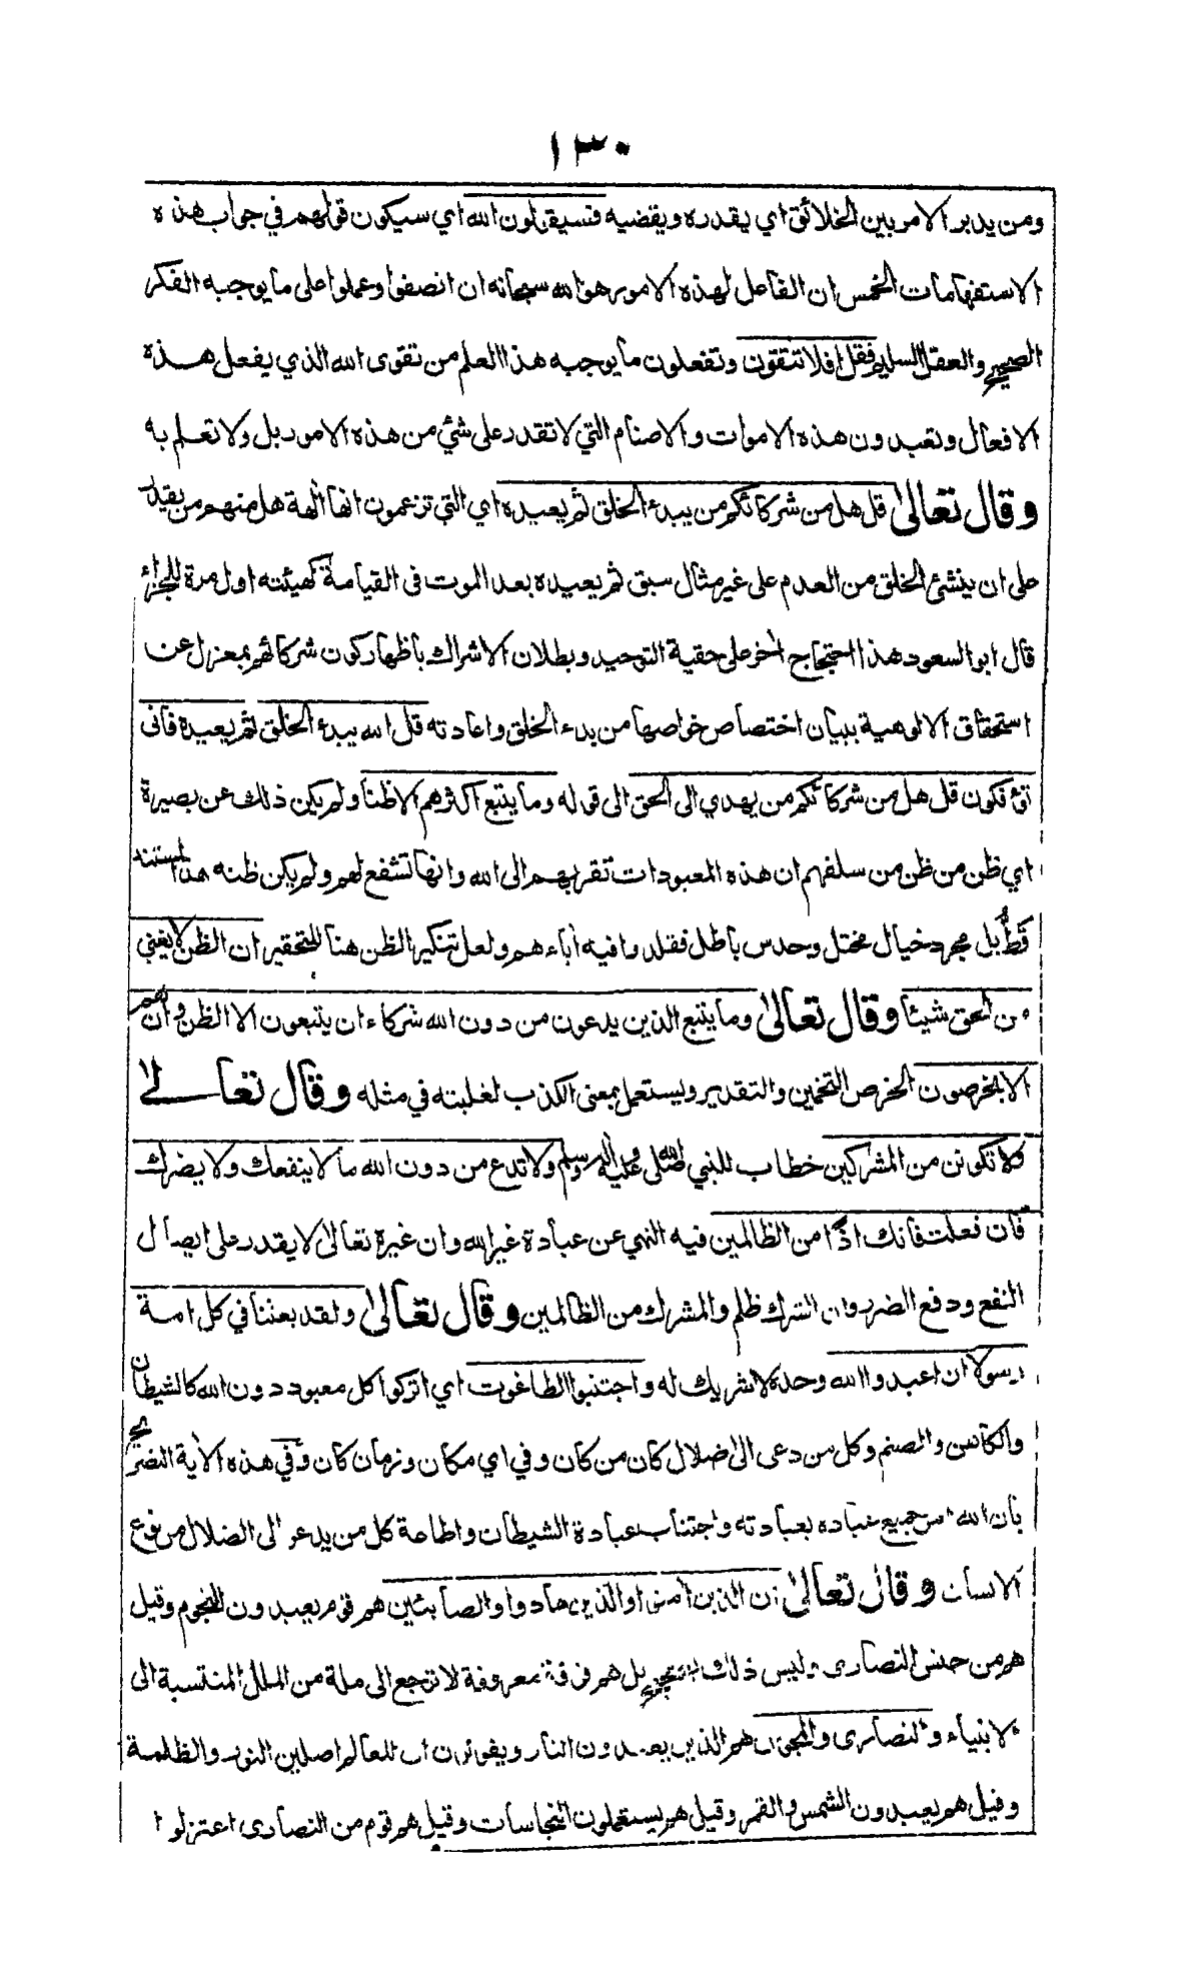 ١٣٠
ومن يدبر الامر بين الخلائق اي يقدره ويقضيه فسيقولون الله اي سيكون قولهم في جواب هذه
الاستفهامات الخمس ان الفاعل لهذه الامور هو الله سبحانه ان انصفوا وعملوا على ما يوجبه الفكر
الصحيح والعقل السليم فقل افلا تتقون وتفعلون ما يوجبه هذا العلم من تقوى الله الذي يفعل هذه
الافعال وتعبدون هذه الاموات والاصنام التي لا تقدر على شيئ من هذه الامور بل ولا تعلم به
وقال تعالى قل هل من شركائكم من يبدء الخلق ثم يعيده اي التي تزعمون انها آلهة هل منهم من يقدر
على ان ينشئ الخلق من العدم على غير مثال سبق ثم يعيده بعد الموت في القيامة كهيئته اول مرة للجزاء
قال ابو السعود هذا احتجاج آخر على حقية التوحيد وبطلان الاشراك باظهار كون شركائهم بمعزل عن
استحقاق الالوهية ببيان اختصاص خواصها من بدء الخلق واعادته قل الله يبدء الخلق ثم يعيده فانى
تؤفكون قل هل من شركائكم من يهدي الى الحق الى قوله وما يتبع اكثرهم الا ظنا ولم يكن ذلك عن بصيرة
اي ظن من ظن من سلفهم ان هذه المعبودات تقربهم الى الله وانها تشفع لهم ولم يكن ظنه هذا لمستند
قط بل مجرد خيال مختل وحدس باطل فقلدوا فيه آباءهم ولعل تنكير الظن هنا للتحقير ان الظن لا يغني
من الحق شيئا وقال تعالى وما يتبع الذين يدعون من دون الله شركاء ان يتبعون الا الظن وان هم
الا يخرصون الخرص التخمين والتقدير ويستعمل بمعنى الكذب لغلبته في مثله وقال تعالى
فلا تكونن من المشركين خطاب للنبي صلى الله عليه وآله وسلم ولا تدع من دون الله ما لا ينفعك ولا يضرك
فان فعلت فانك اذًا من الظالمين فيه النهي عن عبادة غير الله وان غيره تعالى لا يقدر على ايصال
النفع ودفع الضرر وان الشرك ظلم والمشرك من الظالمين وقال تعالى ولقد بعثنا في كل امة
رسولا ان اعبدوا الله وحده لا شريك له واجتنبوا الطاغوت اي اتركوا كل معبود دون الله كالشيطان
والكاهن والصنم وكل من دعى الى ضلال كان من كان وفي اي مكان وزمان كان وفي هذه الآية التصريح
بان الله امر جميع عباده بعبادته واجتناب عبادة الشيطان واطاعة كل من يدعو الى الضلال من نوع
الانسان وقال تعالى ان الذين آمنوا والذين هادوا والصابئين هم قوم يعبدون النجوم وقيل
هم من جنس النصارى وليس ذلك بصحيح بل هم فرقة معروفة لا ترجع الى ملة من الملل المنتسبة الى
الانبياء والنصارى والمجوس هم الذين يعبدون النار ويقولون ان للعالم اصلين النور والظلمة
وقيل هم يعبدون الشمس والقمر وقيل هم يستعملون النجاسات وقيل هم قوم من النصارى اعتزلوا